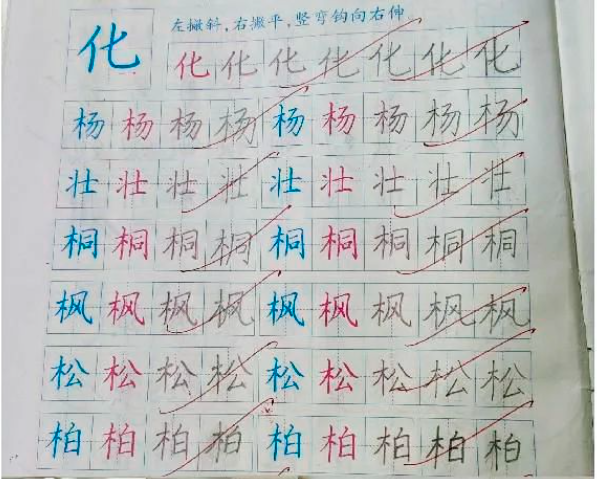 左撇斜,右撇平,竖弯钩向右伸
化 化 化 化 化 化 化 化
杨 杨 杨 杨 杨 杨 杨 杨 杨
壮 壮 壮 壮 壮 壮 壮 壮 壮
桐 桐 桐 桐 桐 桐 桐 桐 桐
枫 枫 枫 枫 枫 枫 枫 枫 枫
松 松 松 松 松 松 松 松 松
柏 柏 柏 柏 柏 柏 柏 柏 柏